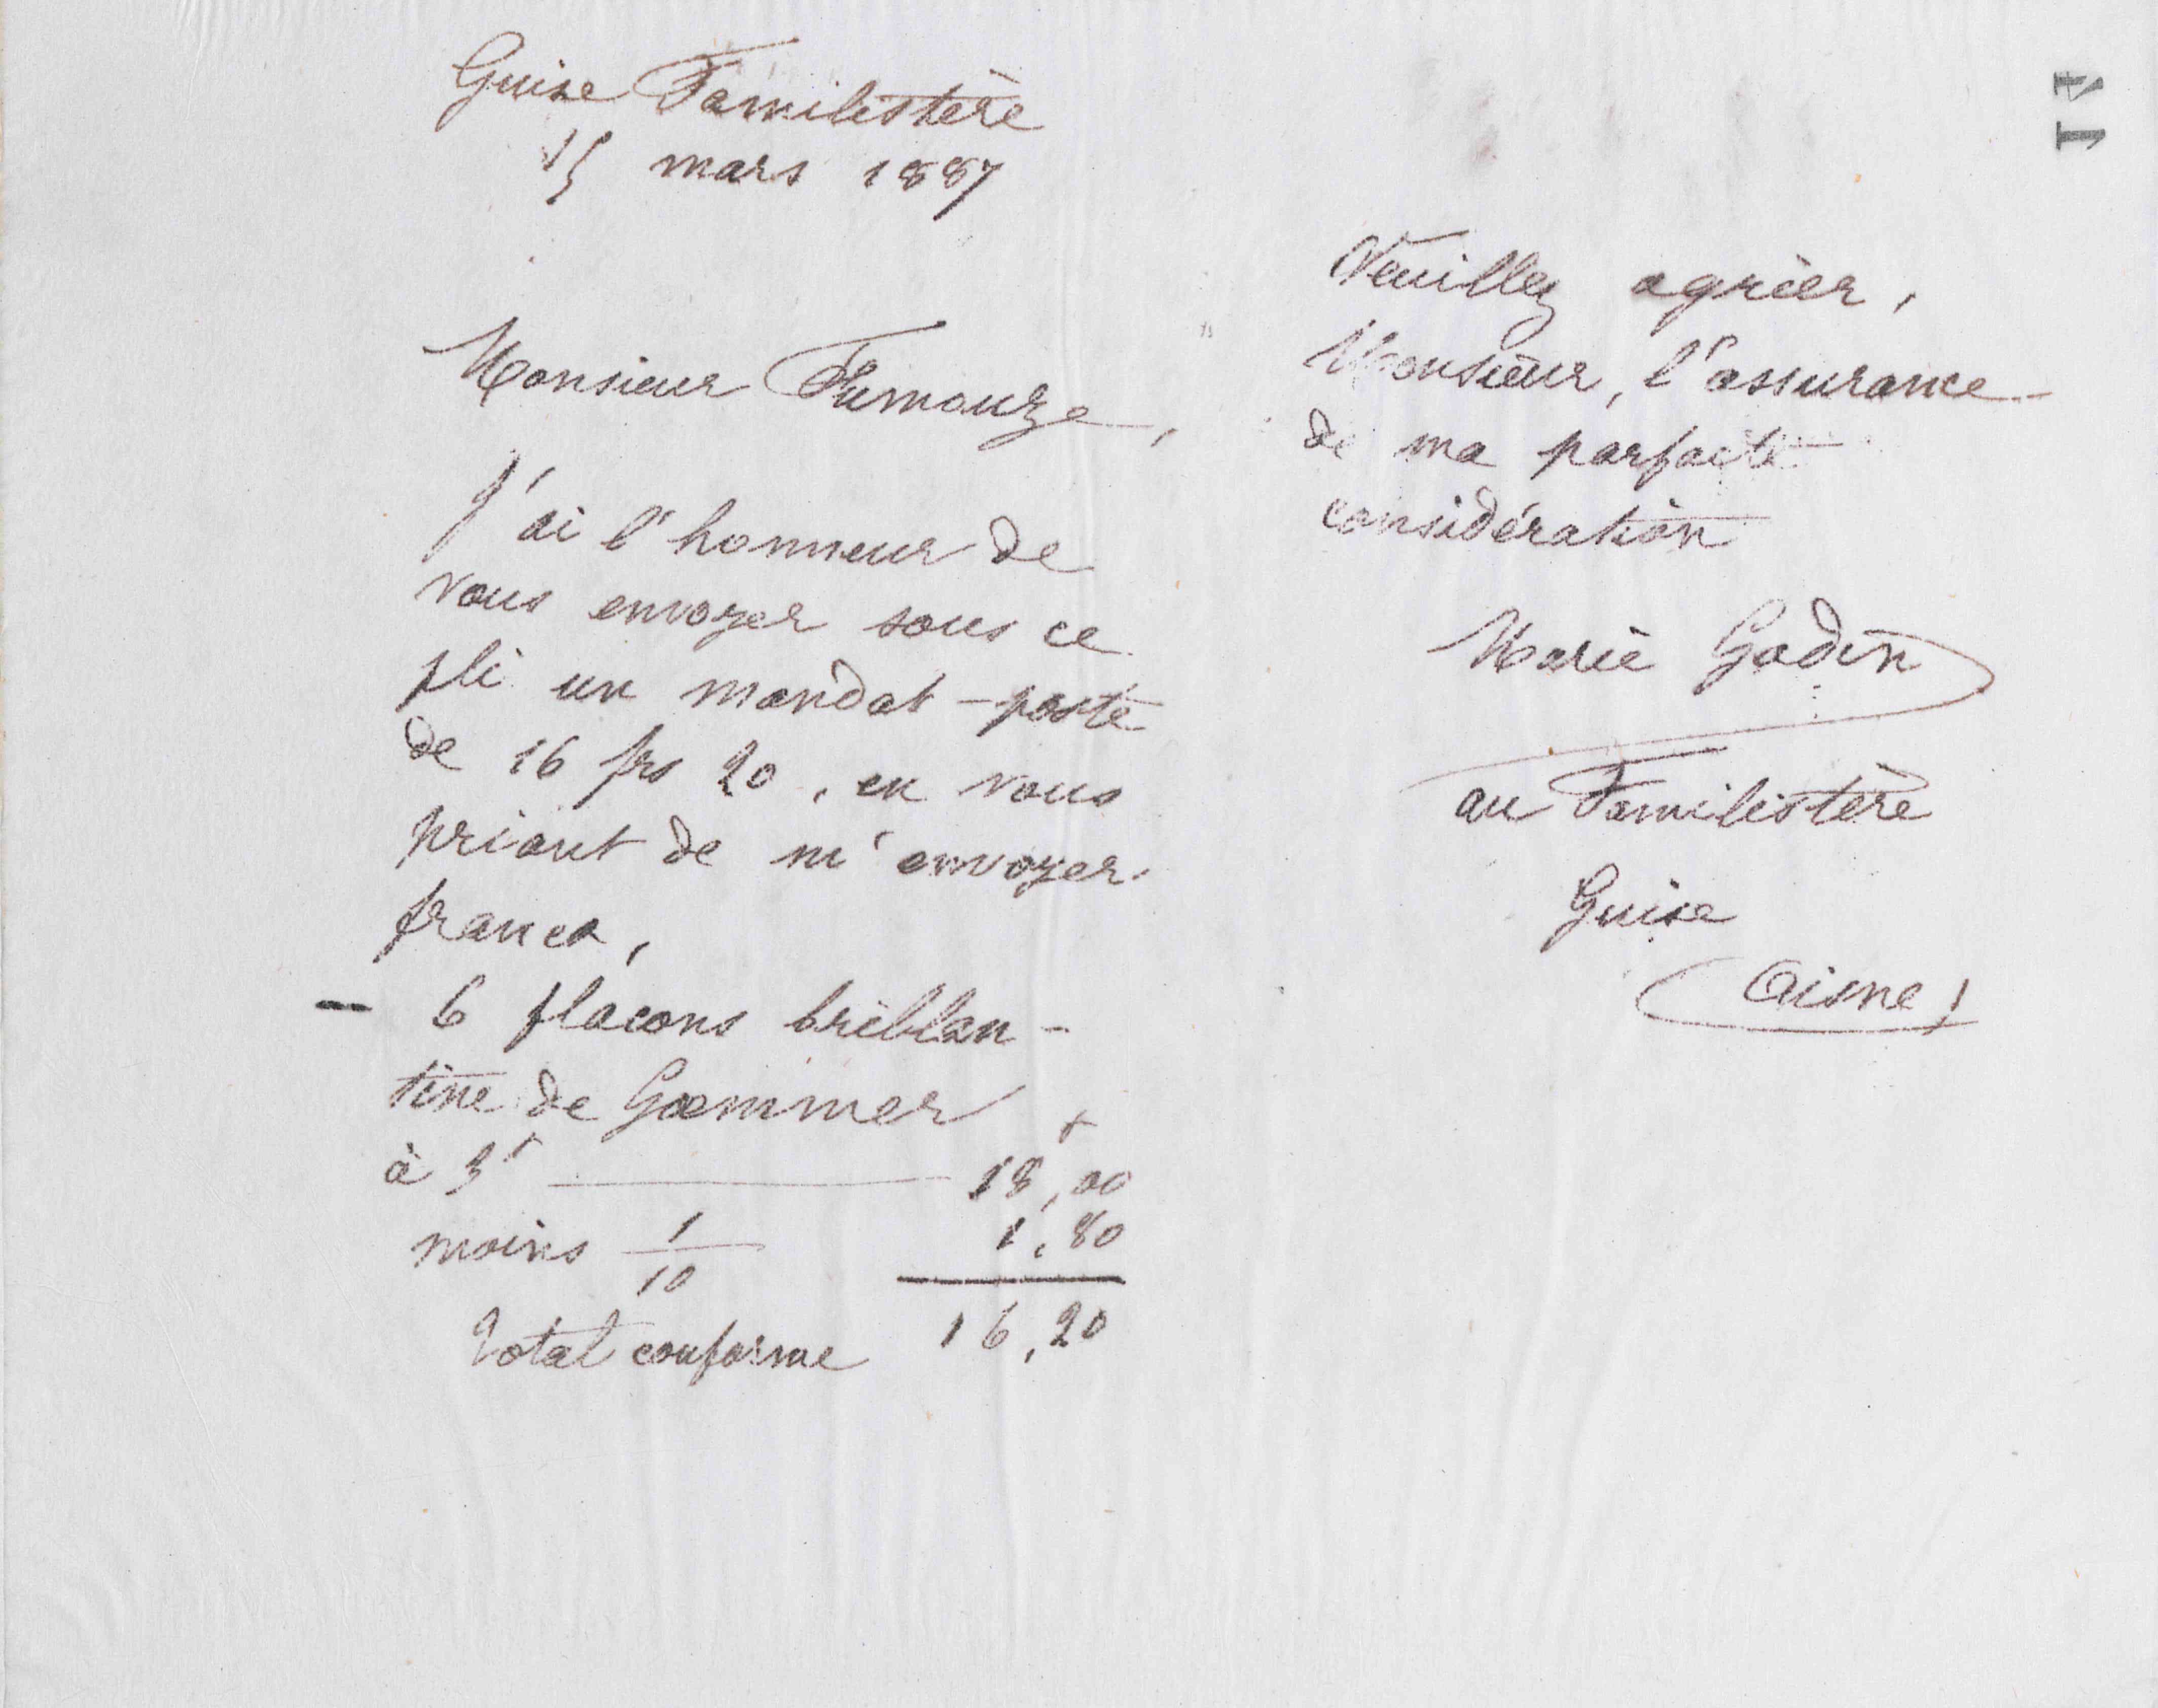 Guise Familistère
15 mars 1887
Monsieur Fumouze,
J'ai l'honneur de
vous envoyer sous ce
pli un mandat-poste
de 16 frs 20, en vous
priant de m'envoyer
franco,
– 6 flacons brillan-
tine de Goemmer
à 3f 18,00
moins 1/10 1,80
Total conforme 16,20
Veuillez agréer,
Monsieur, l'assurance
de ma parfaite
considération
Marie Godin
au Familistère
Guise
(Aisne)